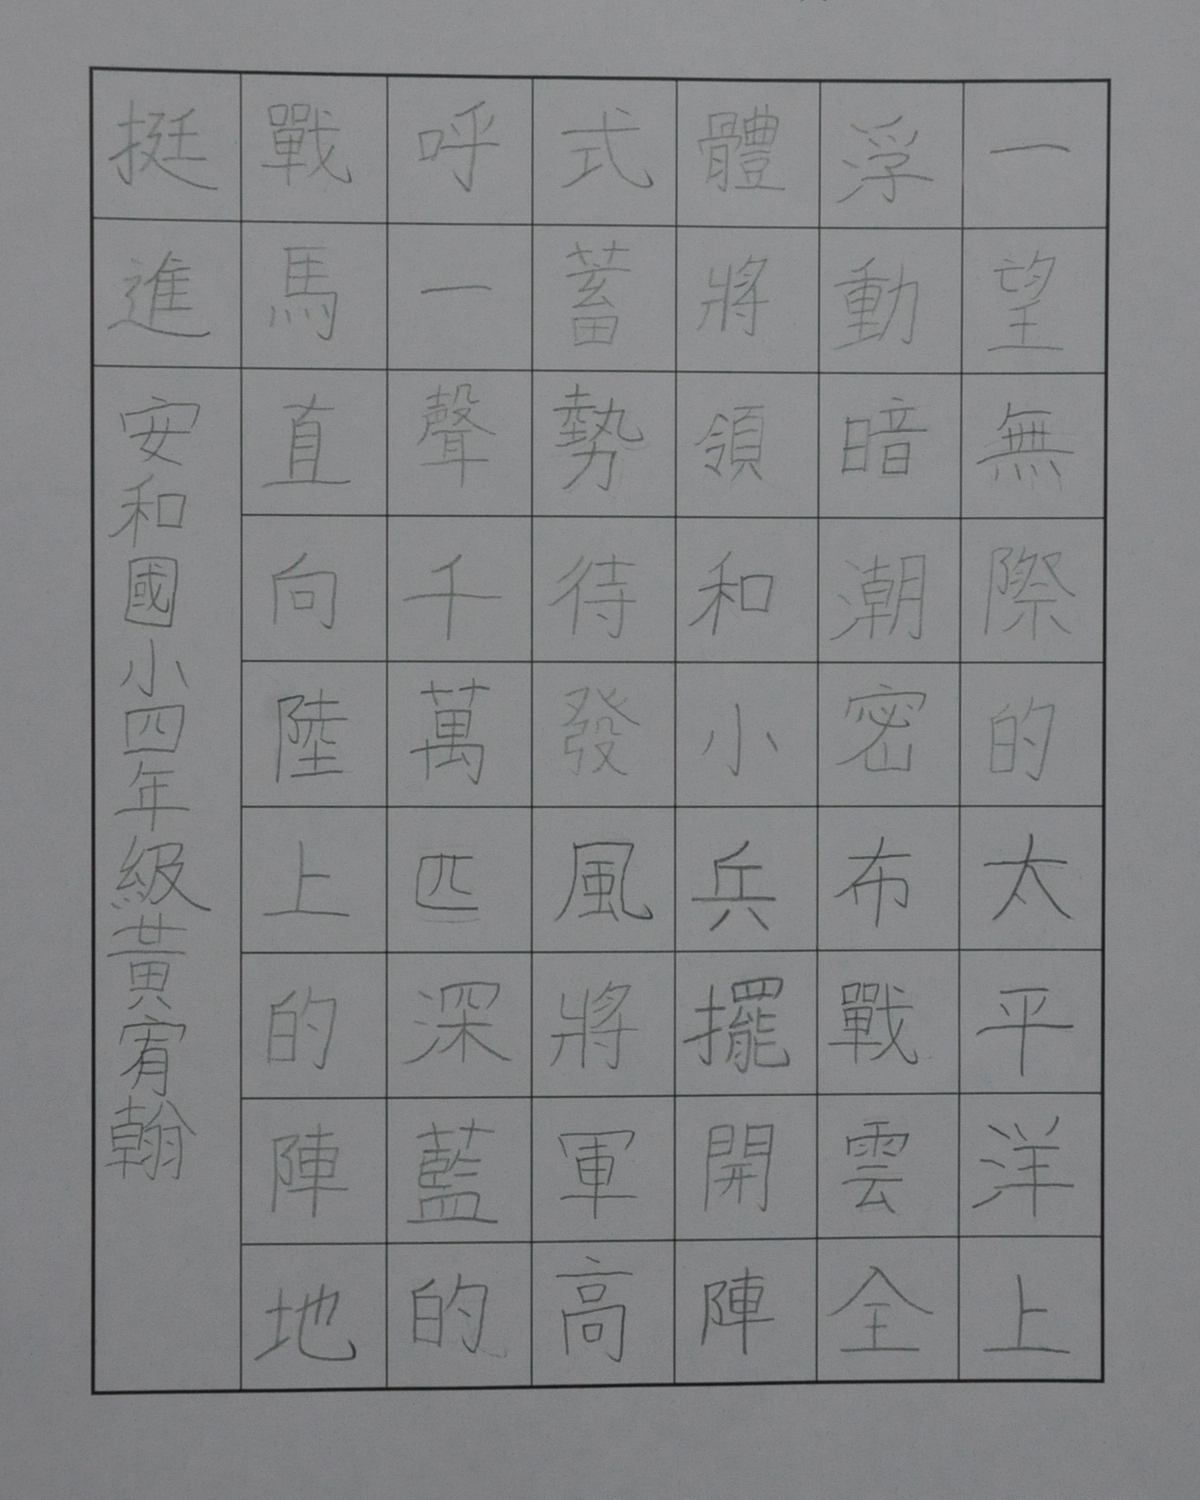 一望無際的太平洋上
浮動暗潮密布戰雲全
體將領和小兵擺開陣
式蓄勢待發風將軍高
呼一聲千萬匹深藍的
戰馬直向陸上的陣地
挺進
安和國小四年級黃宥翰